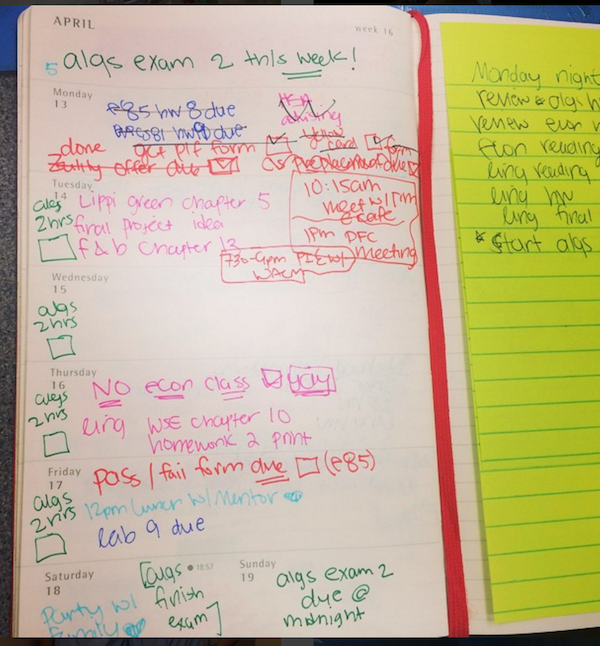 APRIL
week 16
5 algs exam 2 this week!
Monday
13
e85 hw 8 due
advising
done
get PIF form
card
facility offer due
Tuesday
14
algs
2hrs
Lippi green chapter 5
final project idea
f & b chapter 13
10:15am
meet w/
@cafe
1pm DFC
meeting
730-9pm
Wednesday
15
algs
2hrs
Thursday
16
algs
2hrs
NO econ class yay
ling WSE chapter 10
homework 2 print
Friday
17
algs
2hrs
pass / fail form due (e85)
12pm lunch w/ Mentor
lab 9 due
Saturday
18
Party w/
Family
[algs
finish
exam]
1857
Sunday
19
algs exam 2
due @
midnight
Monday night
review algs
review econ
Econ reading
ling reading
ling hw
ling final
* Start algs